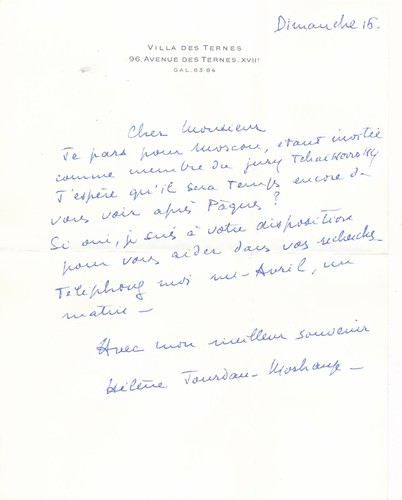 Dimanche 16.
VILLA DES TERNES
96, AVENUE DES TERNES. XVIIe
GAL. 83-84
Cher Monsieur
Je pars pour Moscou, étant invitée
comme membre du jury Tchaikovsky
J'espère qu'il sera temps encore de
vous voir après Pâques ?
Si oui, je suis à votre disposition
pour vous aider dans vos recherches.
Telephonez moi mi-Avril, un
matin -
Avec mon meilleur souvenir
Hélène Jourdan-Morhange -